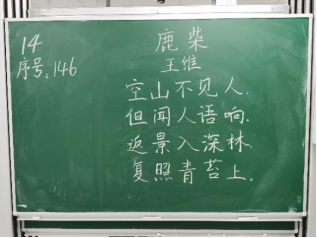 14
序号:146
鹿柴
王维
空山不见人.
但闻人语响.
返景入深林.
复照青苔上.